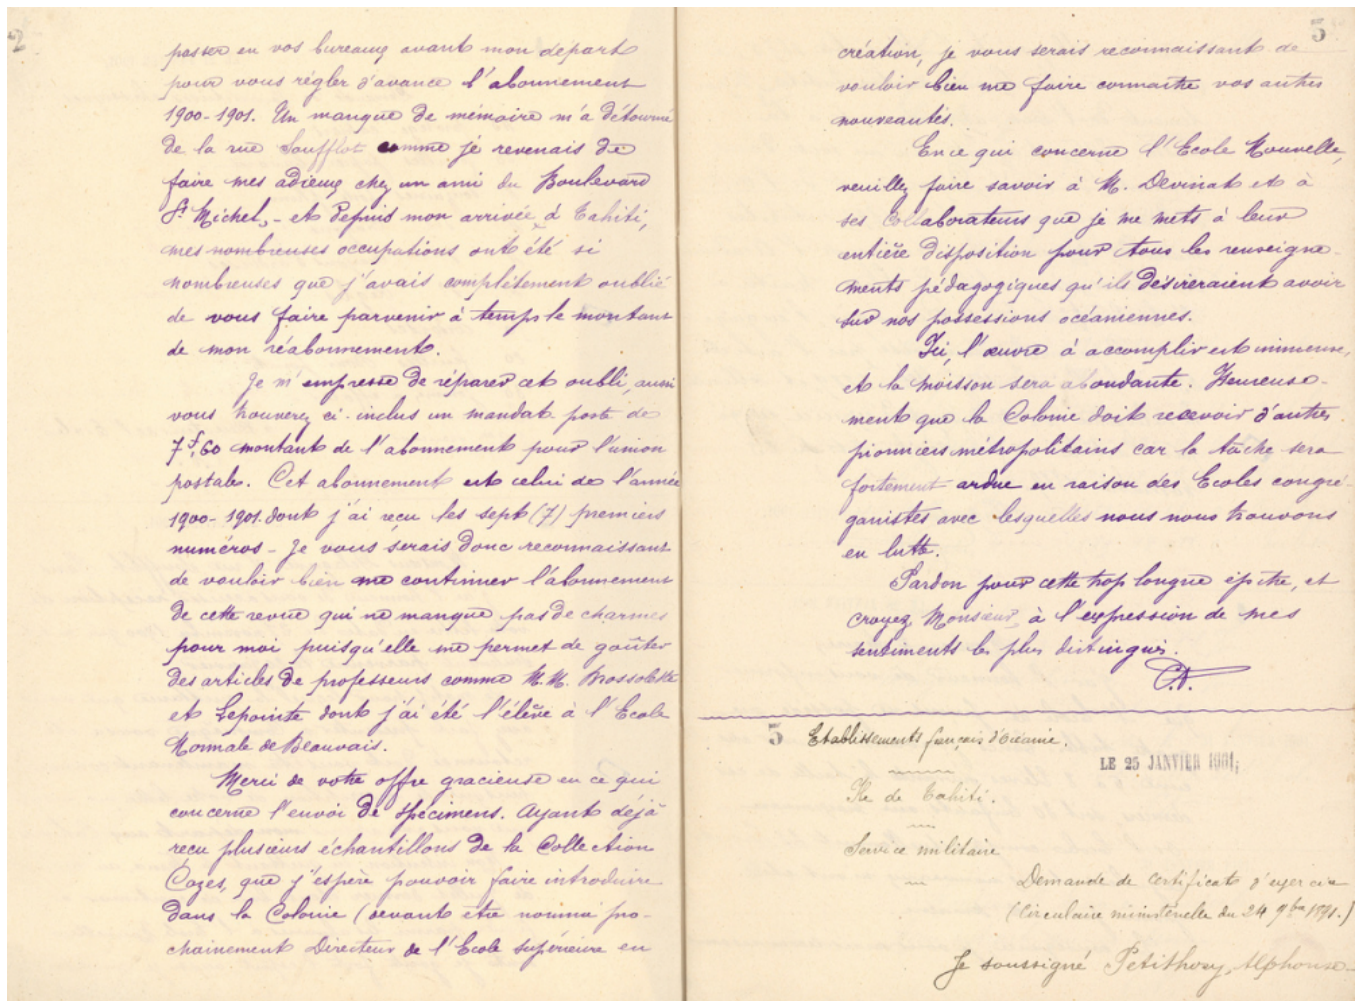 2
passer en vos bureaux avant mon départ
pour vous régler d'avance l'abonnement
1900-1901. Un manque de mémoire m'a détourné
de la rue Soufflot comme je revenais de
faire mes adieux chez un ami du Boulevard
St Michel, - et depuis mon arrivée à Tahiti,
mes nombreuses occupations ont été si
nombreuses que j'avais complètement oublié
de vous faire parvenir à temps le montant
de mon réabonnement.
Je m'empresse de réparer cet oubli, aussi
vous trouverez ci-inclus un mandat-poste de
7f,60 montant de l'abonnement pour l'union
postale. Cet abonnement est celui de l'année
1900-1901. dont j'ai reçu les sept (7) premiers
numéros - Je vous serais donc reconnaissant
de vouloir bien me continuer l'abonnement
de cette revue qui ne manque pas de charmes
pour moi puisqu'elle me permet de goûter
des articles de professeurs comme M.M. Brossolette
et Lepointe dont j'ai été l'élève à l'Ecole
Normale de Beauvais.
Merci de votre offre gracieuse en ce qui
concerne l'envoi de spécimens. Ayant déjà
reçu plusieurs échantillons de la Collection
Cazes, que j'espère pouvoir faire introduire
dans la Colonie (devant être nommé pro-
chainement Directeur de l'Ecole supérieure en
3
création, je vous serais reconnaissant de
vouloir bien me faire connaître vos autres
nouveautés.
En ce qui concerne l'Ecole Nouvelle,
veuillez faire savoir à M. Devinat et à
ses collaborateurs que je me mets à leur
entière disposition pour tous les renseigne-
ments pédagogiques qu'ils désireraient avoir
sur nos possessions océaniennes.
Ici, l'œuvre à accomplir est immense,
et la moisson sera abondante. Heureuse-
ment que la Colonie doit recevoir d'autres
pionniers métropolitains car la tâche sera
fortement ardue en raison des Ecoles congré-
ganistes avec lesquelles nous nous trouvons
en lutte.
Pardon pour cette trop longue épitre, et
croyez, Monsieur, à l'expression de mes
sentiments les plus distingués.
5 Etablissements français d'Océanie.
LE 25 JANVIER 1901,
Ile de Tahiti.
Service militaire
Demande de certificat d'exercice
(Circulaire ministérielle du 24 9bre 1891.)
Je soussigné Petithory, Alphonse